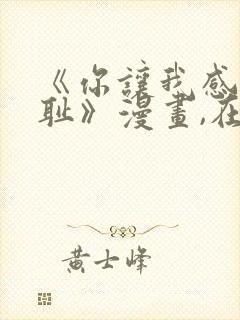 《你讓我感
耻》漫畫,在
黄士峰